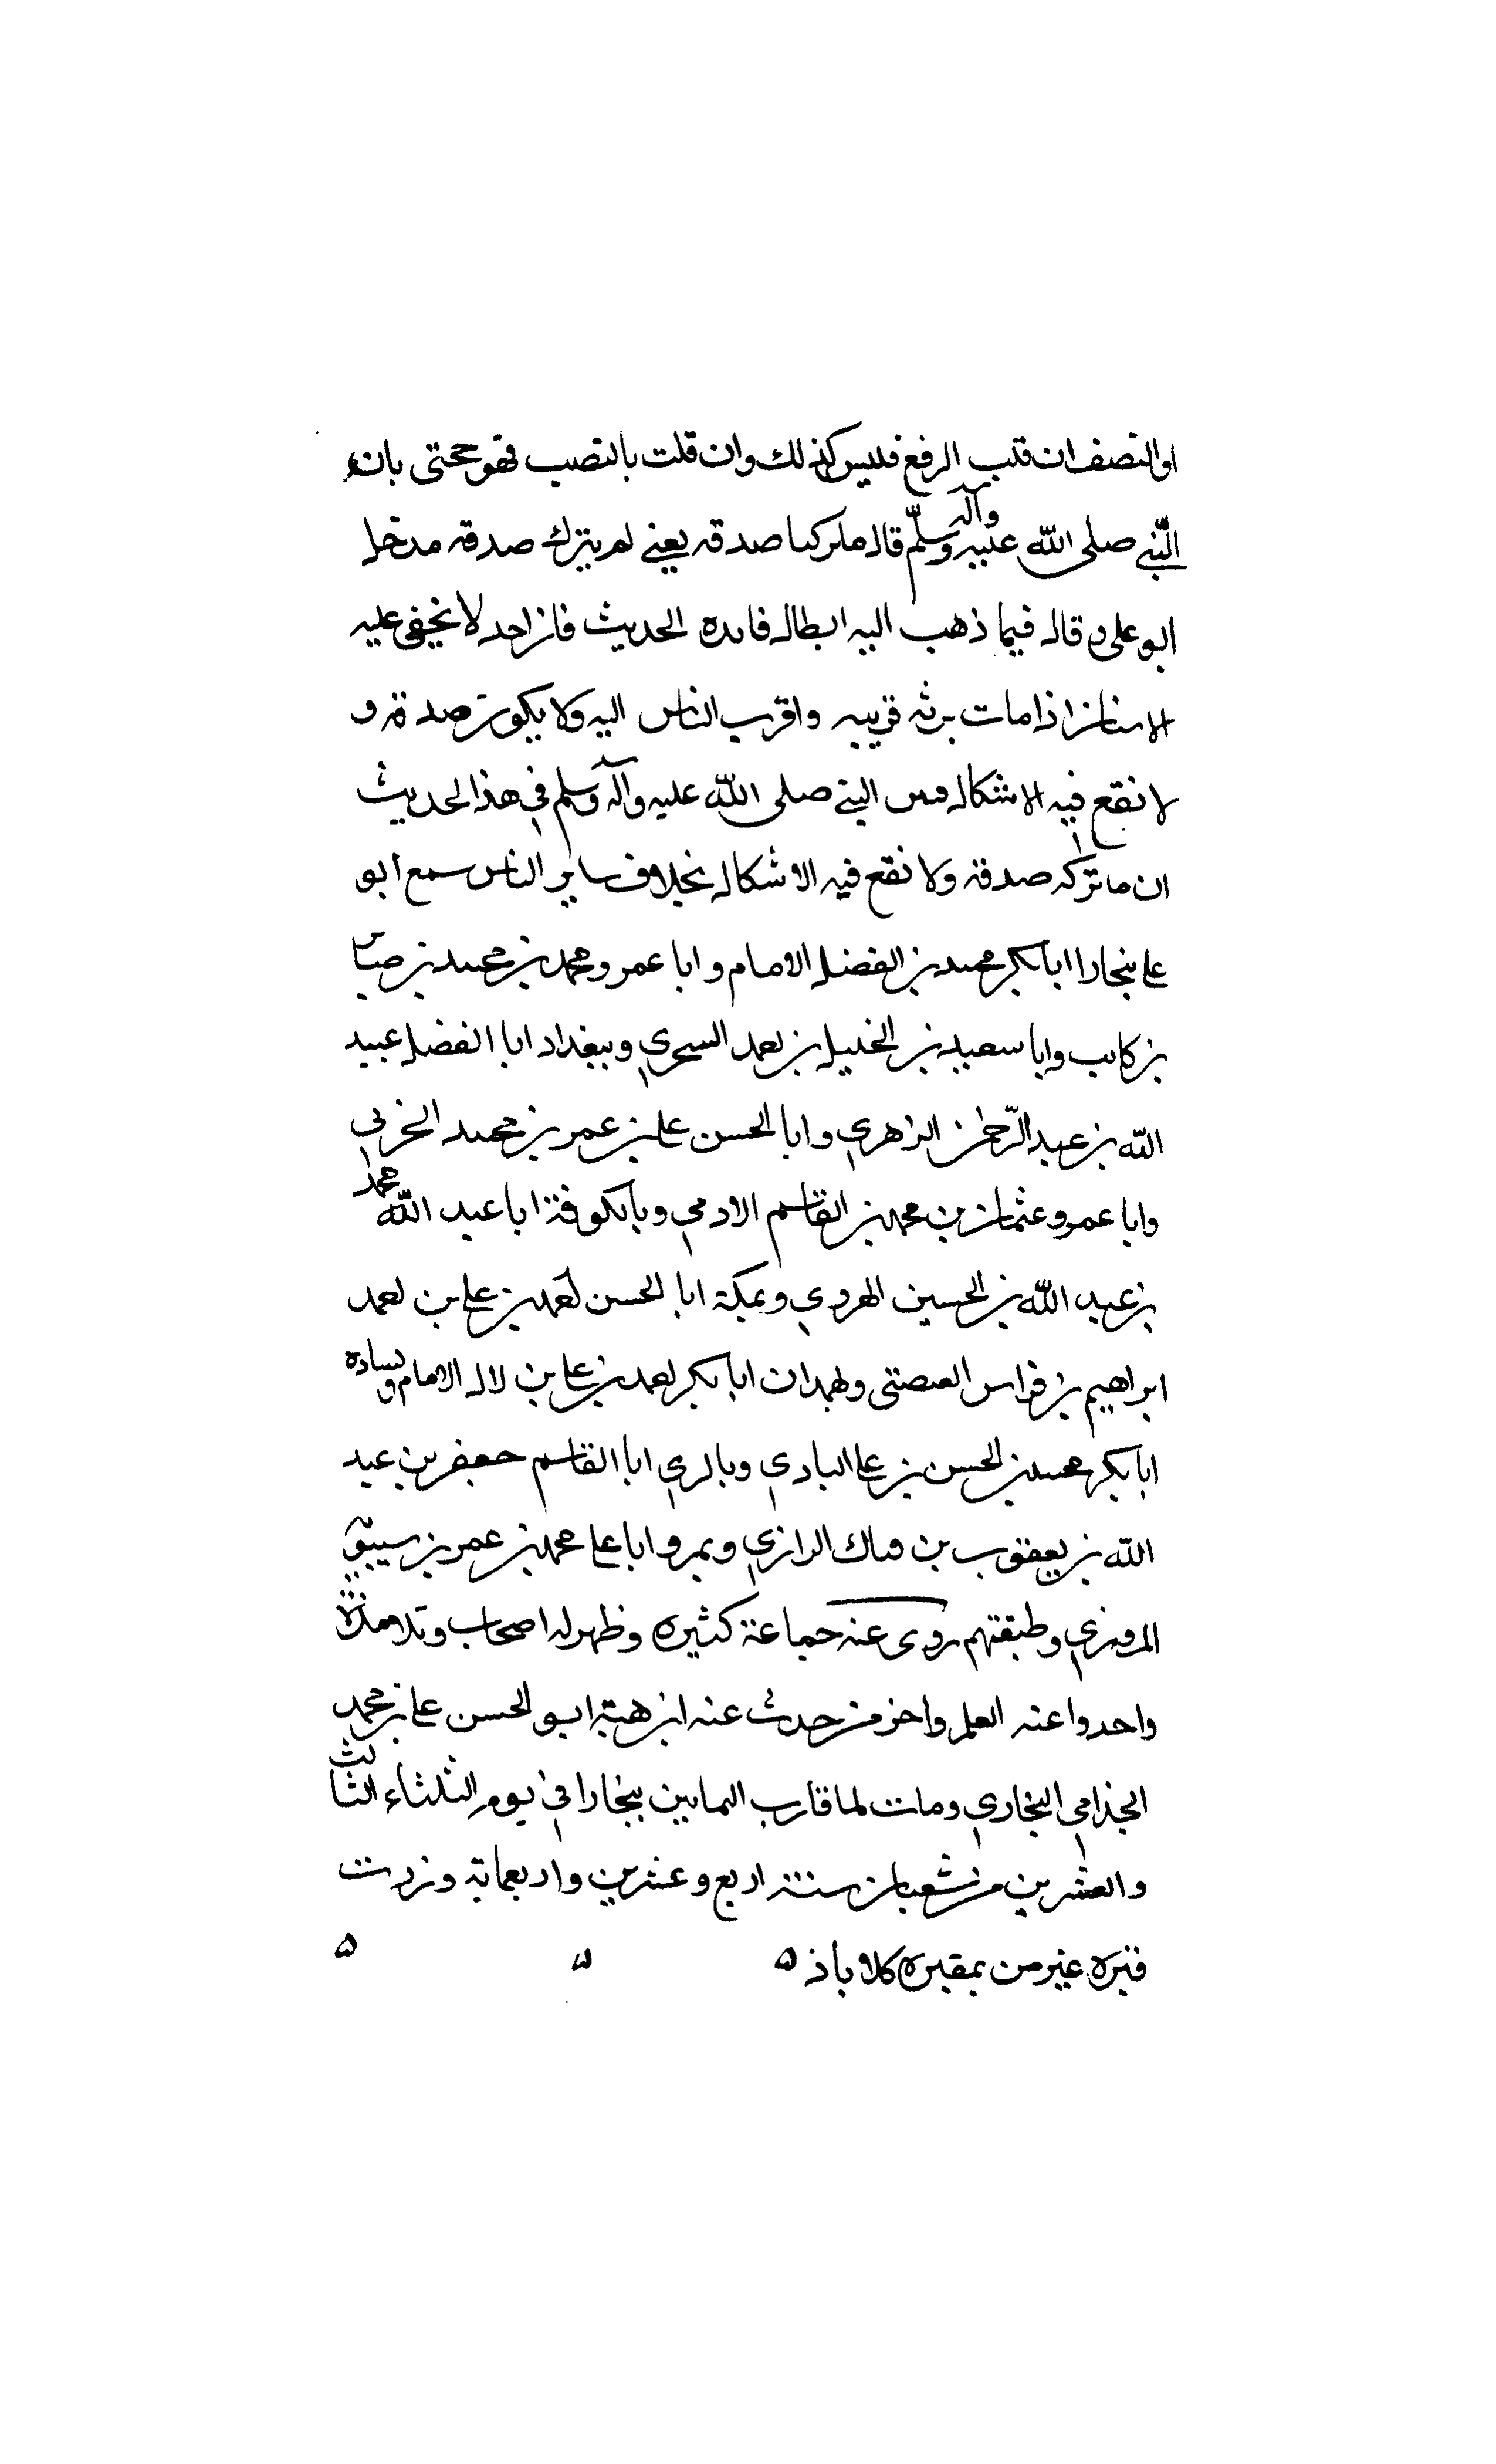 او النصف ان قلت الرفع فليس كذلك وان قلت بالنصب فهو حجتى بان
النبي صلى الله عليه وآله وسلم قال ما تركنا صدقه يعني لم يترك صدقه فدخل
ابو علي وقال فيما ذهب اليه ابطال فايده الحديث فان احد لا يخفى عليه
الانسان اذا مات يرثه قريبه واقرب الناس اليه ولا يكون صدقة و
لا تقع فيه الاشكال فبين النبي صلى الله عليه وآله وسلم في هذا الحديث
ان ما تركه صدقه ولا تقع فيه الاشكال بخلاف ساير الناس سمع ابو
علي ببخارا ابا بكر محمد بن الفضل الامام وابا عمرو محمد بن محمد بن
بن كاتب وابا سعيد بن الخليل بن احمد السجزي وببغداد ابا الفضل عبيد
الله بن عبد الرحمن الزاهري وابا الحسن علي بن عمر بن محمد الحربي
وابا عمرو عثمان بن محمد بن القاسم الادمي وبالكوفة ابا عبد الله محمد
بن عبد الله بن الحسين الهروي وبمكة ابا الحسن احمد بن علي بن احمد
ابراهيم بن فراس العبقسي وبهمدان ابا بكر احمد بن علي بن لال الامام وبساوه
ابا بكر محمد بن الحسن بن علي البادي وبالري ابا القاسم جعفر بن عبد
الله بن يعقوب بن فناك الرازي وبمرو ابا علي محمد بن عمر بن شبويه
المروزي وطبقتهم روى عنه جماعة كثيره وظهر له اصحاب وتلامذة
واخذوا عنه العلم واخر من حدث عنه ابن هبة ابو الحسن علي بن محمد
الجذامي البخاري ومات لما قارب الثمانين ببخارا في يوم الثلثاء الثالث
والعشرين من شعبان سنة اربع وعشرين واربعماية وزرت
قبره غير من بمقبره كلاباذ ه ه ه